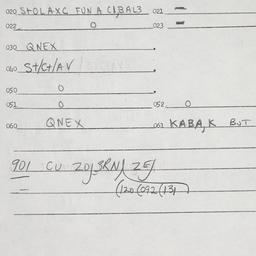 020 StOLAXC FUN A CIBAL3 021 —
022 O 023 —
030 QNEX
040 St/Ct/AV
050 O
051 O 052 O
060 QNEX 061 KABA,K BUT
901 CU ZOJ3RN1 ZEJ
(120 (092 (131